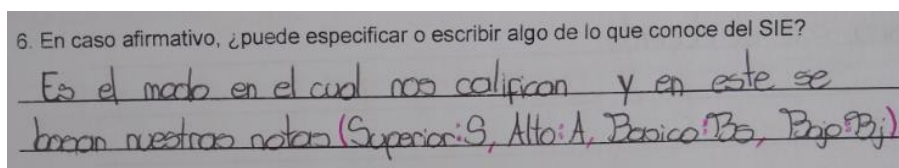 6. En caso afirmativo, ¿puede especificar o escribir algo de lo que conoce del SIE?
Es el modo en el cual nos califican y en este se
basan nuestras notas (Superior:S, Alto:A, Basico:Bs, Bajo:Bj)